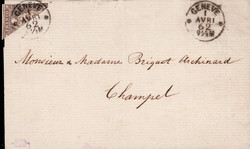 GENÈVE
1
AVRI
62
GENÈVE
1
AVRI
62
Monsieur & Madame Briquet Archinard
Champel